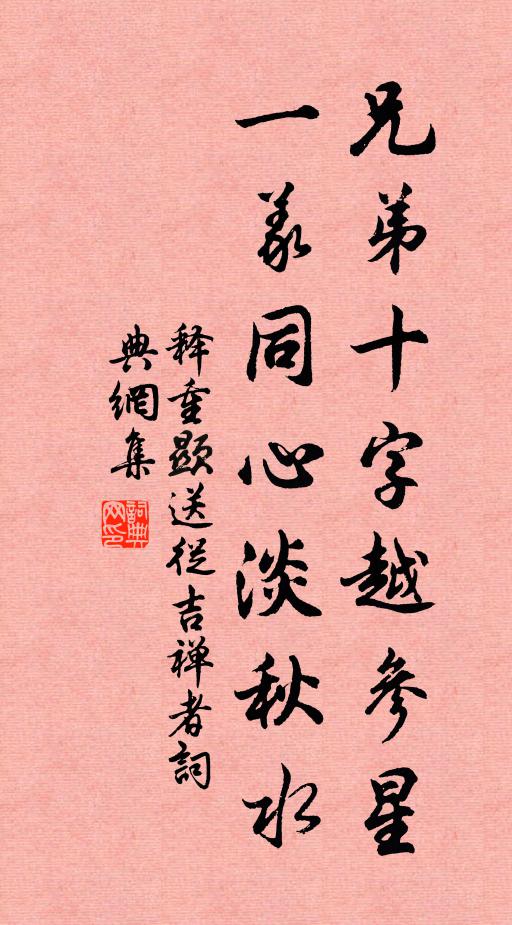 兄弟十字越參星
一义同心淡秋水
释重顯送從吉禅者詞
典網集
詞典网印